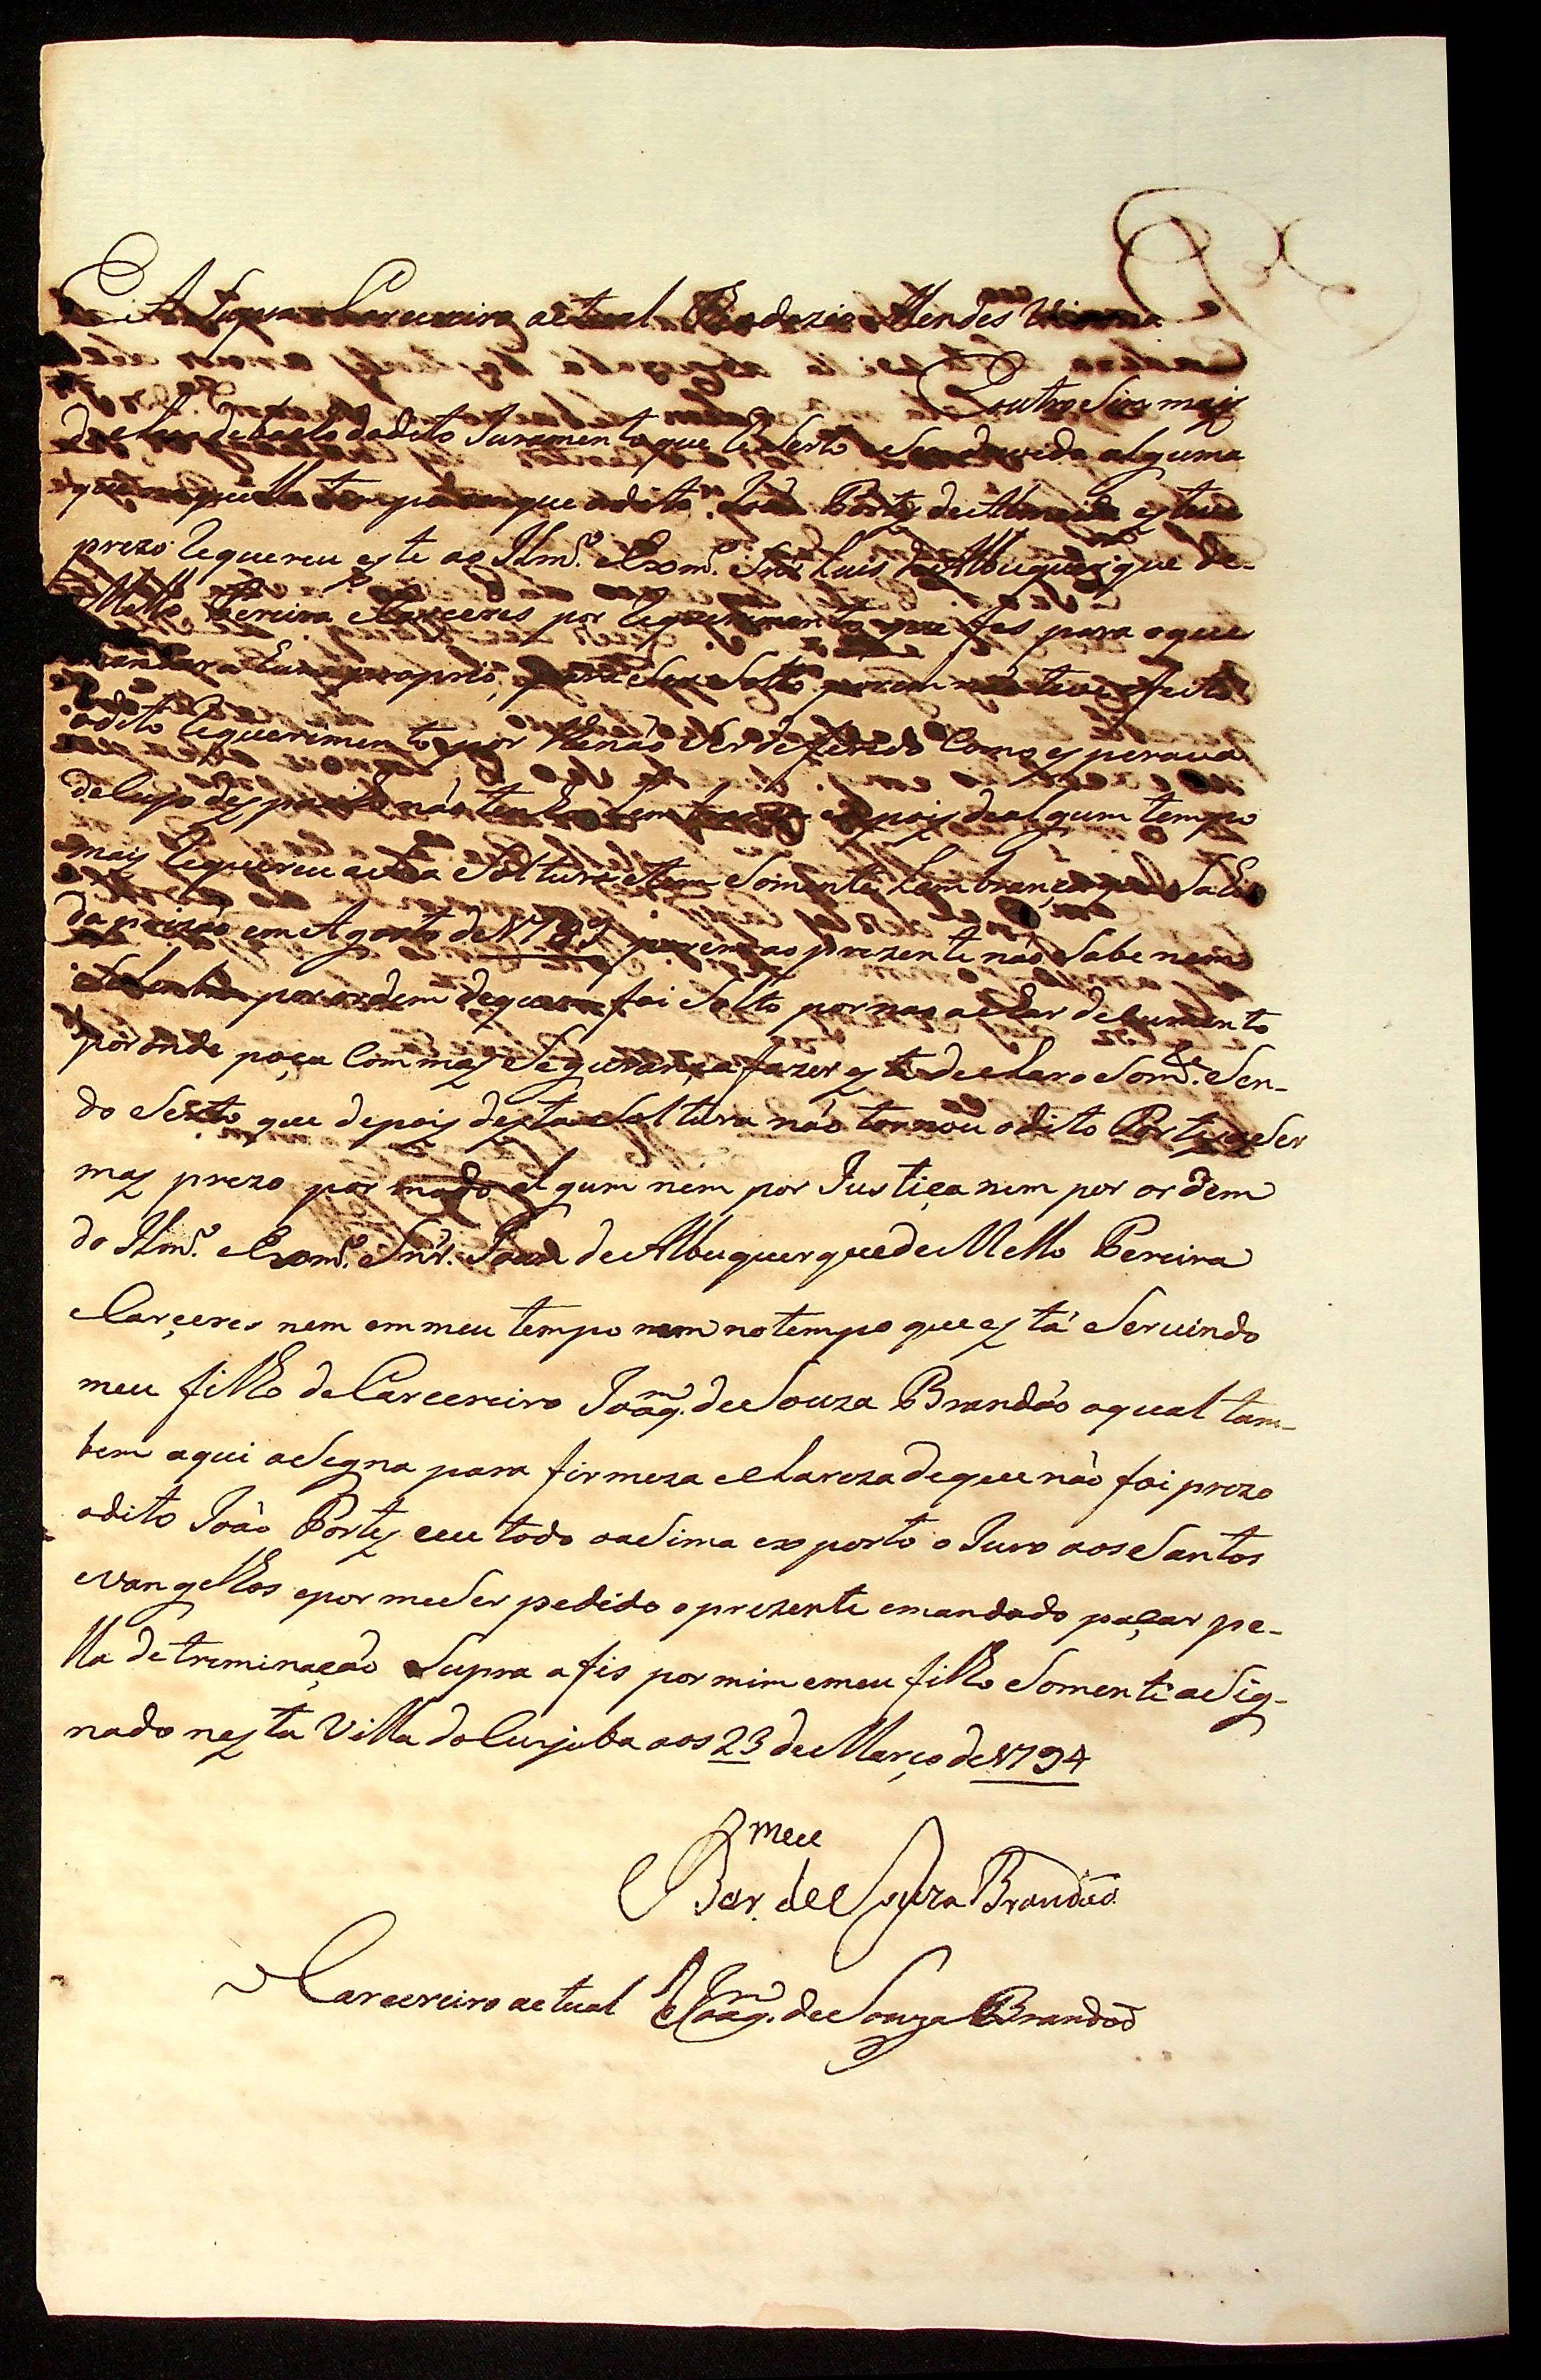 actual Mendes
Eoutro Sim mais
do dito Juramento que he Serto Sem duvida alguma
que tempo em que o dito João Portes de Almeida esteve
prezo requereu este ao Illm.º e Exm.º Snr Luis de Albuquerque de
Mello Pereira e Caceres por requerimento que fes para o que
proprio, Solto porem não teve efeito
o dito requerimento por elle não Ser deferido Como esperava
de Cujo despacho não tenho e depois de algum tempo
mais requereu a Soltura e tem Somente Lembrança que Sahio
da prizão em Agosto de 1789 porem ao prezente não Sabe nem
por ordem de quem foi Solto por nao achar docummento
por onde poça Com mais Segurança fazer esta declaro Som.te Sen-
do Serto que depois desta Soltura não tornou o dito Portes a Ser
mas prezo por modo algum nem por Justiça nem por ordem
do Illm.º e Exm.º Snr. João de Albuquerque de Mello Pereira
e Carçeres nem em meu tempo nem no tempo que está Servindo
meu filho de Carcereiro Joaq.m de Souza Brandão o qual tam-
bem aqui aSegna para firmeza e Clareza de que não foi prezo
o dito João Portes e eu todo o aSima exposto o Juro aos Santos
evangelhos e por me Ser pedido o prezente e mandado paçar pe-
lla detreminação Supra a fis por mim e meu filho Somente aSig-
nado nesta Villa do Cuyaba aos 23 de Março de 1794
Bar.meu de Souza Brandão
Carcereiro actual Joaq.m de Souza Brandão